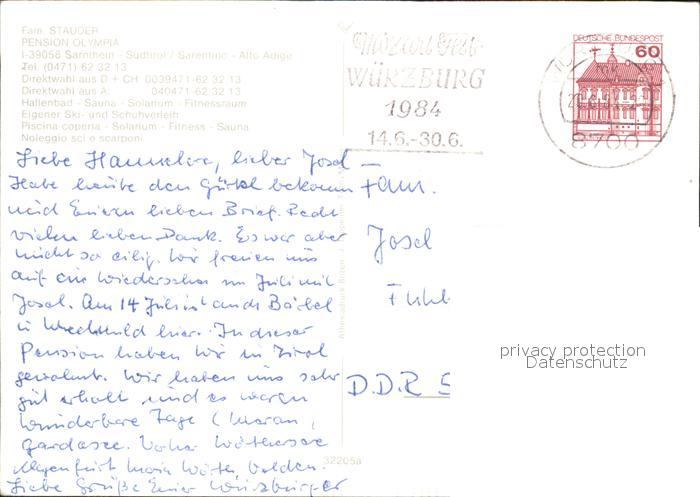 Fam. STAUDER
PENSION OLYMPIA
I-39058 Sarnthein - Südtirol / Sarentino - Alto Adige
Tel. (0471) 62 32 13
Direktwahl aus D + CH 0039471-62 32 13
Direktwahl aus A: 040471-62 32 13
Hallenbad - Sauna - Solarium - Fitnessraum
Eigener Ski- und Schuhverleih
Piscina coperta - Solarium - Fitness - Sauna
Noleggio sci o scarponi
Mozart Fest
WÜRZBURG
1984
14.6.-30.6.
DEUTSCHE BUNDESPOST
60
8700
Liebe Hannelore, lieber Josel —
Habe heute den Gürtel bekomm
und Euren lieben Brief. Recht
vielen lieben Dank. Es war aber
nicht so eilig. Wir freuen uns
auf ein Wiedersehn im Juli mit
Josel. Am 14 Juli ist auch Bärbel
u. Mechthild hier. In dieser
Pension haben wir in Tirol
gewohnt. Wir haben uns sehr
gut erholt und es waren
wunderbare Tage (Meran,
Gardasee. Vorher Wörthersee
Klagenfurt Maria Wörth Velden.
Liebe Grüße Eure Würzburger
Fam.
Josel
D.D.R
32205a
privacy protection
Datenschutz